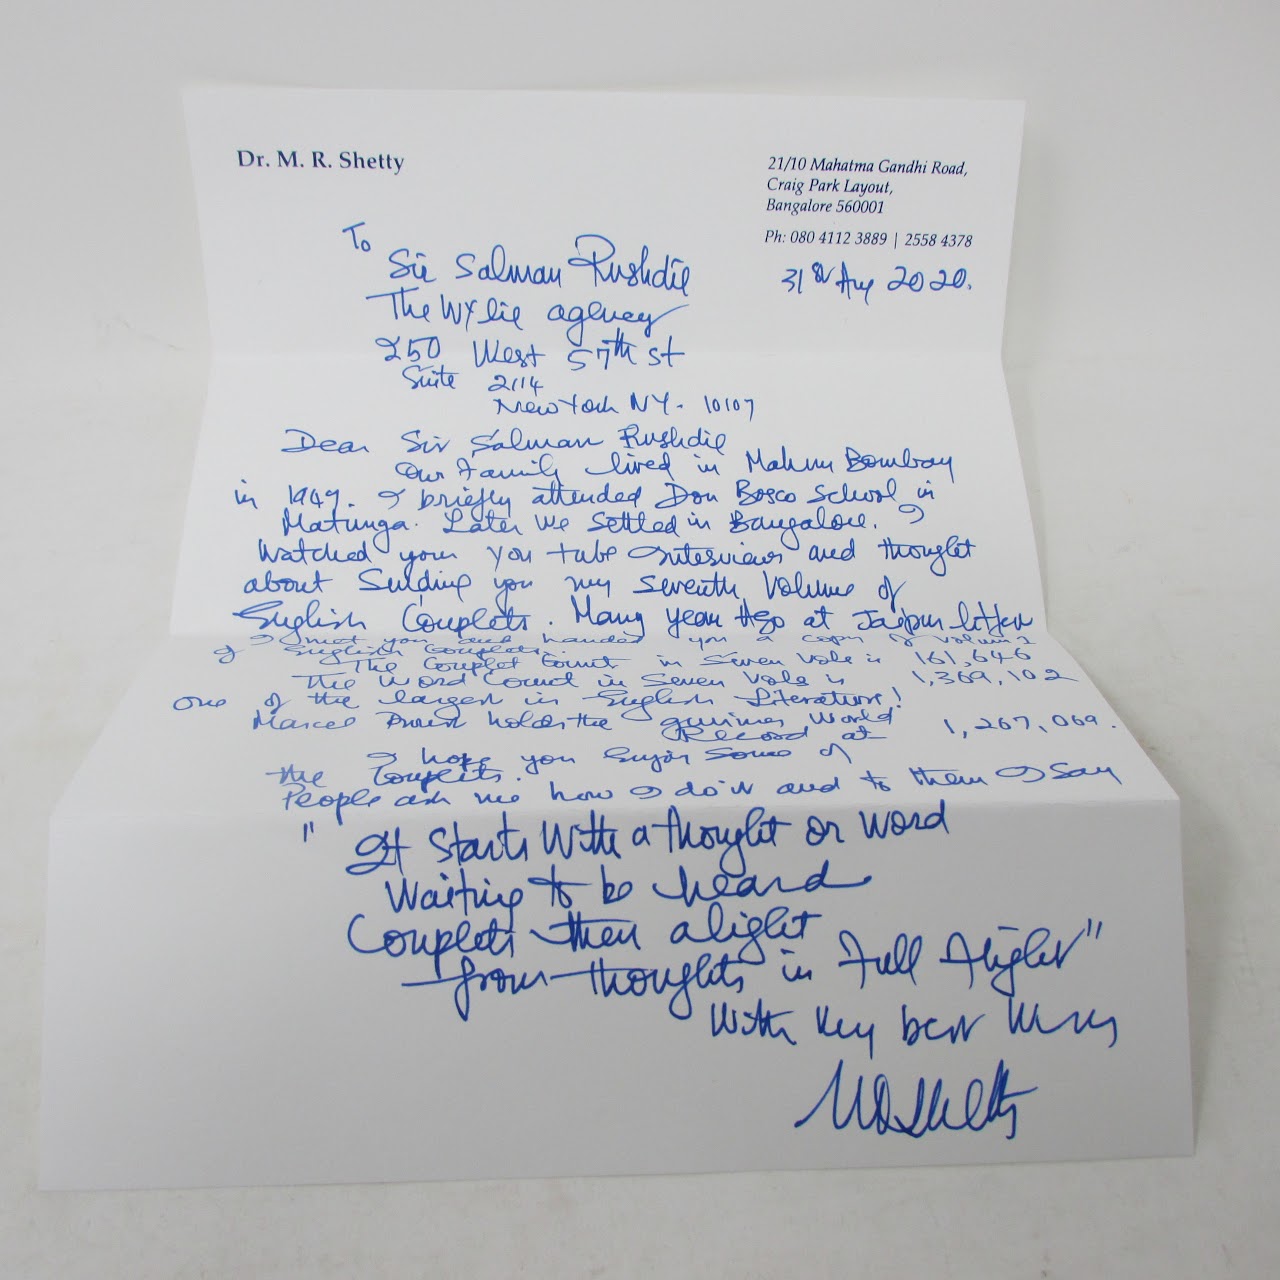 Dr. M. R. Shetty
21/10 Mahatma Gandhi Road,
Craig Park Layout,
Bangalore 560001
Ph: 080 4112 3889 | 2558 4378
31st Aug 2020.
To
Sir Salman Rushdie
The Wylie agency
250 West 57th st
Suite 2114
New York NY. 10107
Dear Sir Salman Rushdie
Our Family lived in Mahim Bombay
in 1949. I briefly attended Don Bosco School in
Matunga. Later We Settled in Bangalore. I
Watched your You tube Interviews and thought
about Sending you my Seventh Volume of
English Couplets. Many years Ago at Jaipur
I met you and handed you a copy of Volume 2
of English Couplets.
The Couplet Count in Seven Vols is 161,646
The Word Count in Seven Vols is 1,369,102
One of the largest in English Literature!
Marcel Proust holds the guiness World
Record at 1,267,069.
I hope you Enjoy Some of
the Couplets.
People ask me how I do it and to them I Say
" It Starts With a thought or Word
Waiting to be heard
Couplets then alight
from thoughts in Full Flight"
With Very best
MRShetty